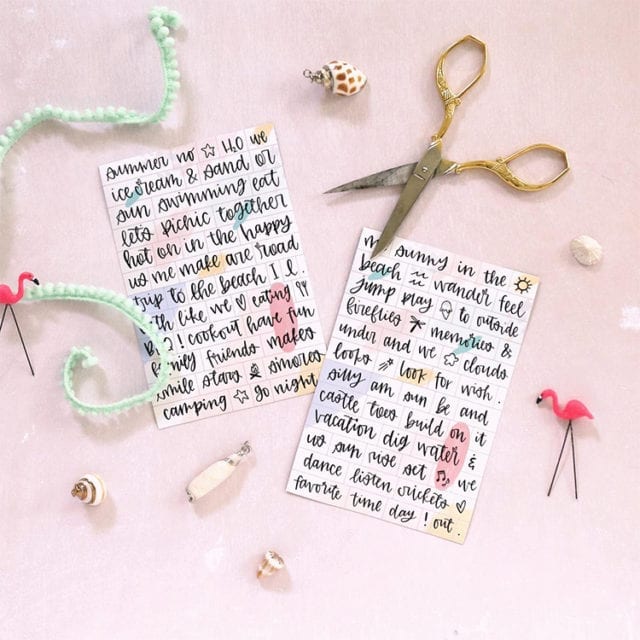 summer no ☆ H2O we
ice cream & sand or
sun swimming eat
lets picnic together
hot on in the happy
us me make are road
trip to the beach I l.
with like we ♡ eating
BBQ! cookout have fun
family friends makes
smile stars smores
camping ☆ go night
sunny in the
beach wander feel
jump play to outside
fireflies memories &
under and we clouds
loops look for wish.
silly am sun be and
castle toes build on it
vacation dig water &
us sun rise set ♫ we
dance listen crickets ♡
favorite time day ! out .